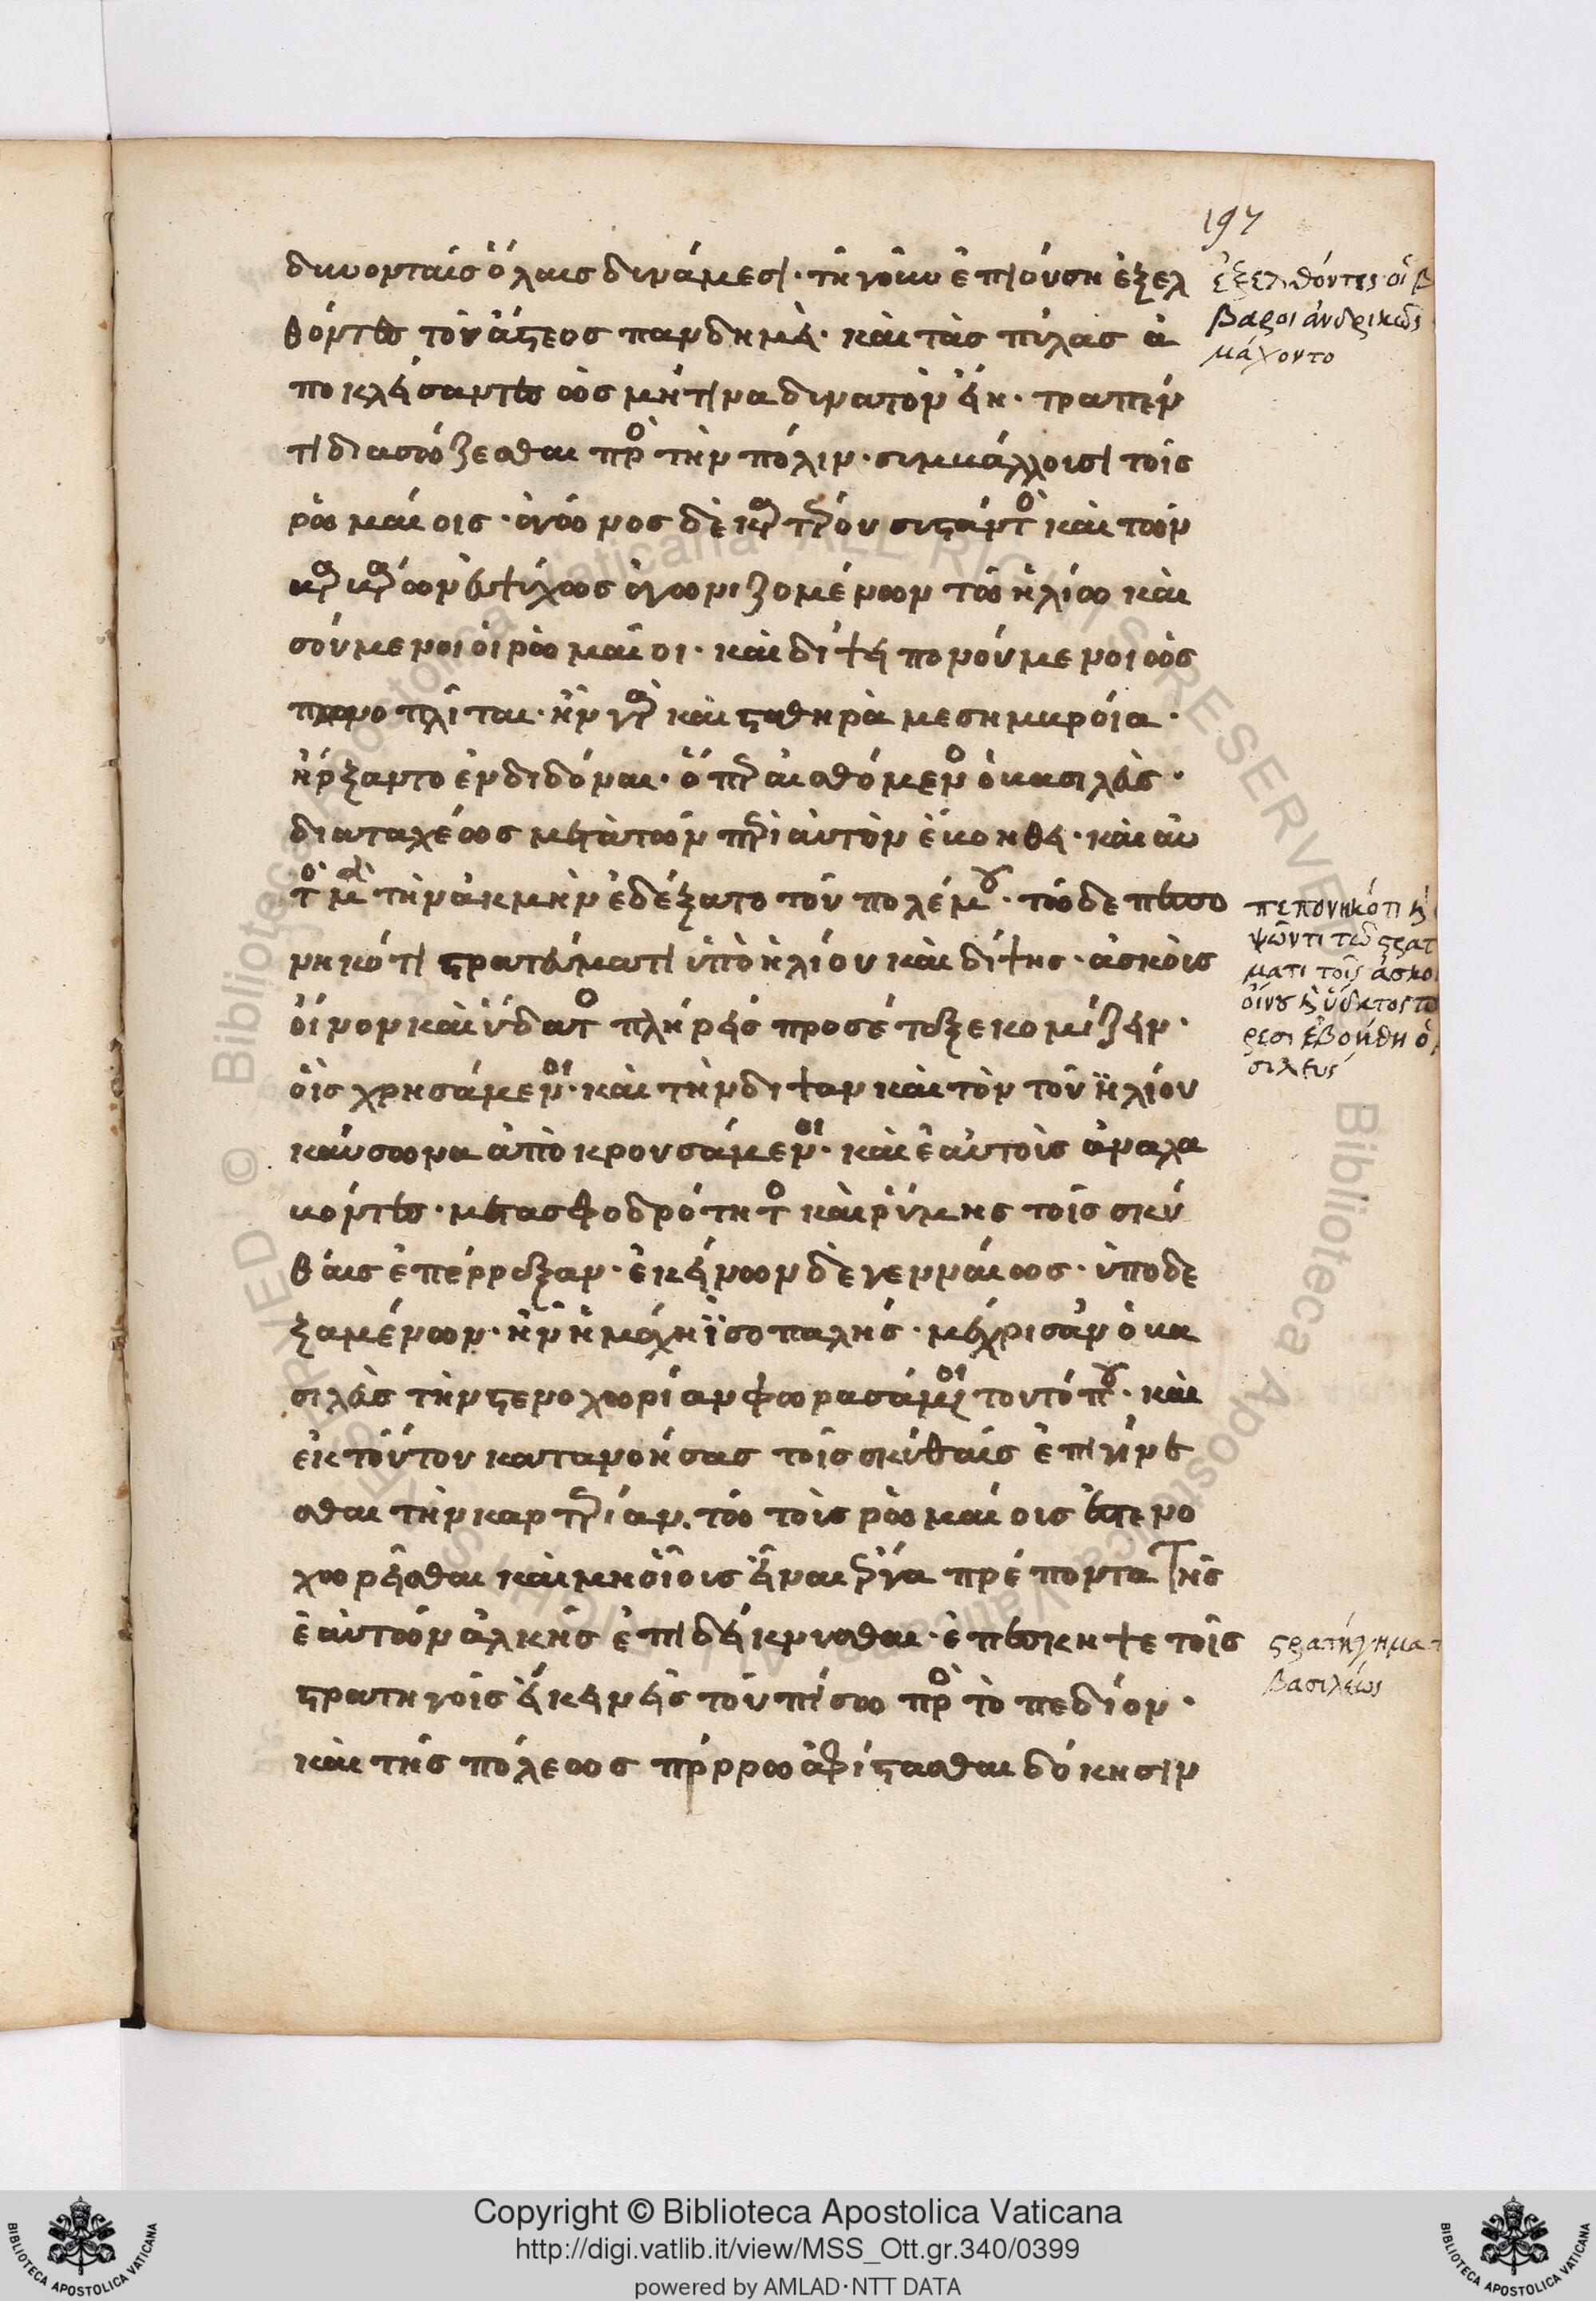 197
δικυονταὶς ὅλαις δυνάμεσι· τῆ γοῦν ἐπιούση ἐξελ
θόντες τοῦ ἄστεος πανδημεί· καὶ τὰς πύλας ἀ
ποκλείσαντες ὡς μή τινα δυνατὸν εἴη· τραπέν
τι διασώζεσθαι πρὸς τὴν πόλιν· συμβάλλουσι τοῖς
ῥωμαίοις· ἀγῶνος δὲ καρτεροῦ συστάντος καὶ τῶν
βαρβάρων εὐψύχως ἀγωνιζομένων τῶ ἡλίω και
σούμενοι οἱ ῥωμαῖοι· καὶ δίψει πονούμενοι ὡς
πανοπλῖται· ἦν γὰρ καὶ σταθηρὰ μεσημβρία·
ἤρξαντο ἐνδιδόναι· ὅπερ αἰσθόμενος ὁ βασιλεὺς·
διαταχέως μετὰ τῶν περὶ αὐτὸν ἐβοήθει· καὶ αὐ
τὸς μὲν τὴν ἀκμὴν ἐδέξατο τοῦ πολέμου· τῶ δὲ πεπο
νηκότι στρατεύματι ὑπὸ ἡλίου καὶ δίψης· ἀσκοὺς
οἴνου καὶ ὕδατος πλήρεις προσέταξε κομίζειν·
οἷς χρησάμενοι· καὶ τὴν δίψαν καὶ τὸν τοῦ ἡλίου
καύσωνα ἀποκρουσάμενοι· καὶ ἑαυτοὺς ἀναλα
βόντες· μετὰ σφοδρότητος καὶ ῥύμης τοῖς σκύ
θαις ἐπέρραξαν· ἐκείνων δὲ γενναίως· ὑποδε
ξαμένων· ἦν ἡ μάχη ἰσοπαλής· μέχρις ἂν ὁ βα
σιλεὺς τὴν στενοχωρίαν φωρασάμενοι του τόπου· καὶ
ἐκ τούτου κατανοήσας τοῖς σκύθαις ἐπιγίνε
σθαι τὴν καρτερίαν. τῶ τοὺς ῥωμαίους στενο
χωρεῖσθαι καὶ μὴ οἵους εἶναι ἔργα πρέποντα τῆς
ἑαυτῶν ἀλκῆς ἐπιδείκνυσθαι· ἐπέσκηψε τοῖς
στρατηγοῖς εἴκειν εἰς τοὐπίσω πρὸς τὸ πεδίον·
καὶ τῆς πόλεως πόρρω ἀφίστασθαι δόκησιν
ἐξελθόντες οἱ β
βαροι ἀνδρικῶς
μάχοντο
πεπονηκότι κ
ψῶντι τῶ στρατ
ματι τοῖς ἀσκο
οἴνου κ ὕδατος
ρεσι ἐβοήθη ὁ
σιλεύς
στρατήγημα τ
βασιλέως
Copyright © Biblioteca Apostolica Vaticana
http://digi.vatlib.it/view/MSS_Ott.gr.340/0399
powered by AMLAD·NTT DATA